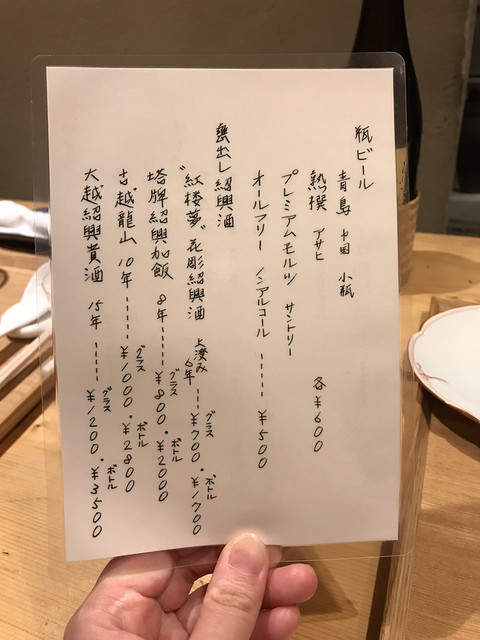 瓶ビール
青島 中国 小瓶
熟撰 アサヒ 各¥600
プレミアムモルツ サントリー
オールフリー ノンアルコール ------ ¥500
甕出し紹興酒
"紅楼夢"花彫紹興酒 上澄み 6年 --- グラス ¥700・ボトル ¥1700
塔牌紹興加飯 8年 ---- グラス ¥800・ボトル ¥2000
古越龍山 10年 ------ グラス ¥1000・ボトル ¥2800
大越紹興貴酒 15年 ----- グラス ¥1200・ボトル ¥3500